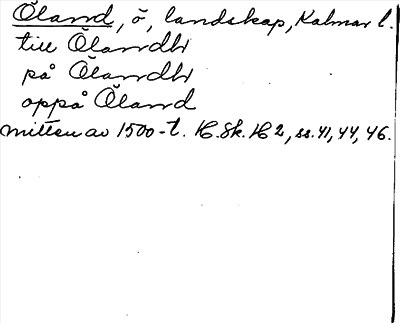 Öland, ö, landskap, Kalmar l.
till Ölandh
på Ölandh
oppå Öland
mitten av 1500-t. H. Sk. H 2, ss. 41, 44, 46.